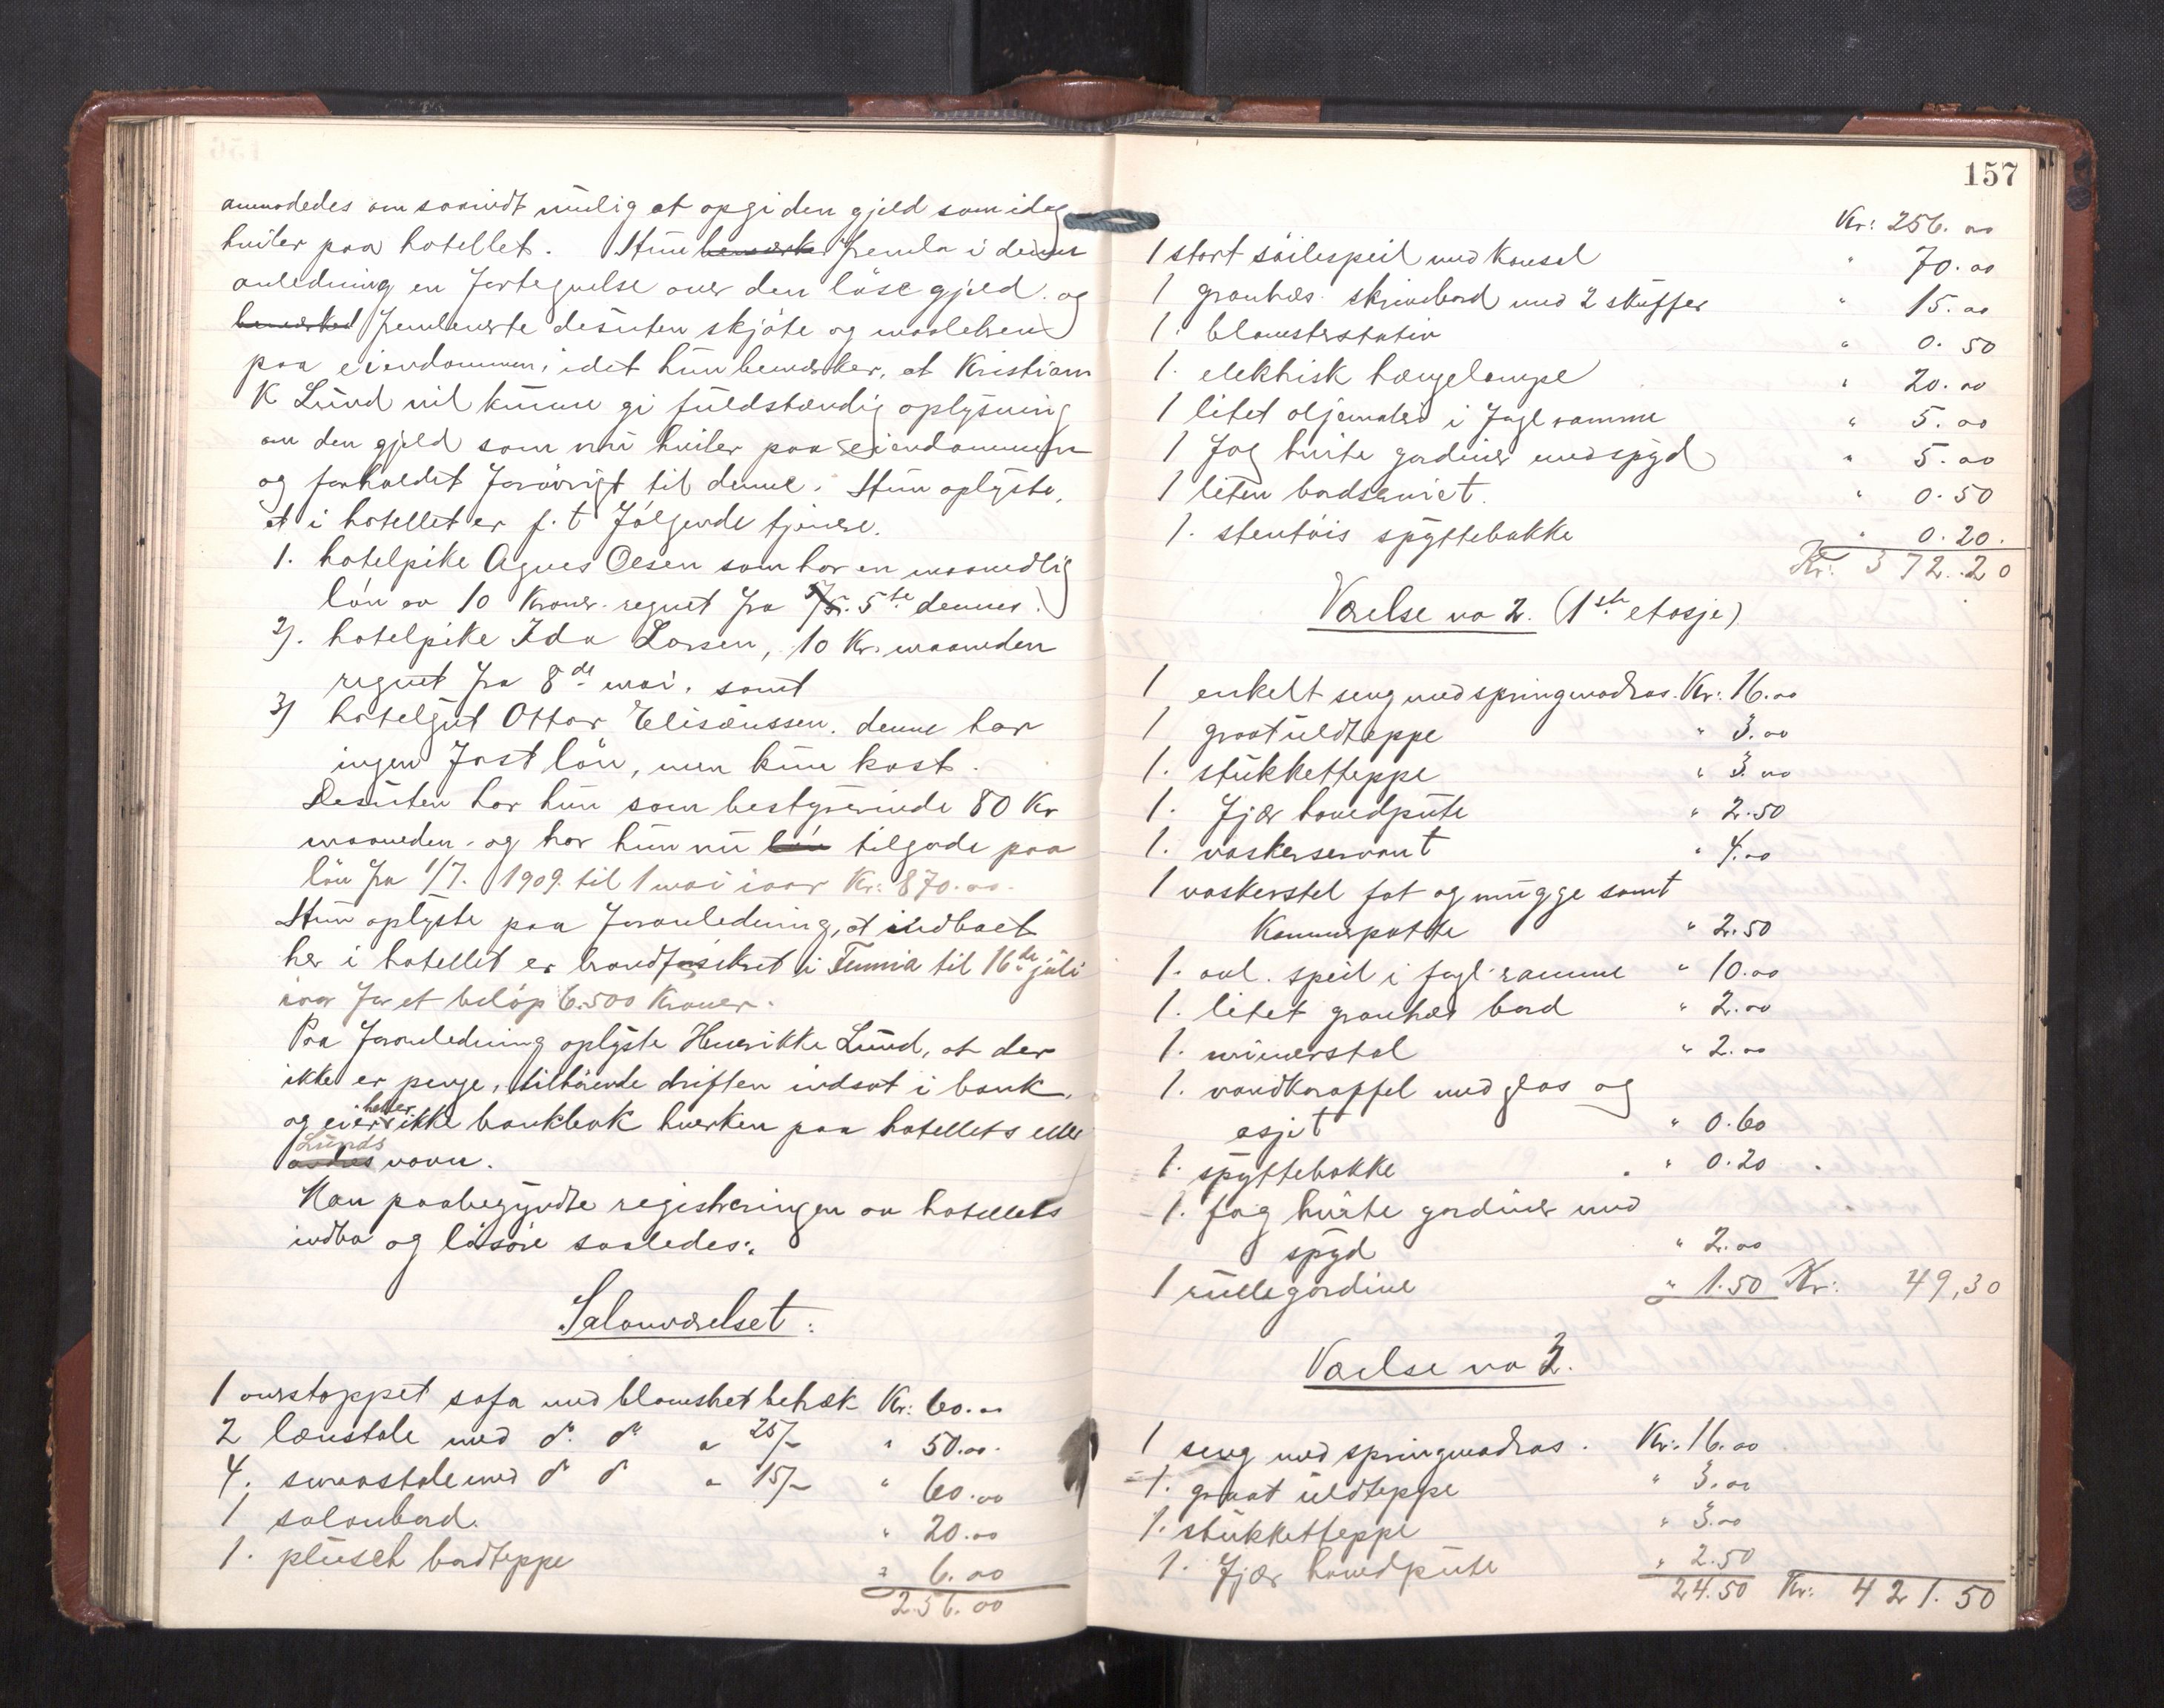 anmodedes om saavidt mulig at opgi den gjæld som idag
hviler paa hotellet. Hun bemærket fremla i denne
anledning en fortegnelse over den løse gjæld. og
bemærket fremleverte desuten skjøte og maalebrev
paa eiendommen, idet hun bemærker, at Kristian
K Lund vil kunne gi fuldstændig oplysning
om den gjæld som nu hviler paa eiendommen
og forholdet forøvrigt til denne. Hun oplyste,
at i hotellet er f. t følgende tjenere.
1. hotelpike Agnes Olsen som har en maanedlig
løn av 10 Kroner. regnet fra 5te dennes.
2). hotelpike Ida Larsen, 10 Kr. maaneden
regnet fra 8de mai. samt
3) hotelgut Ottar Eliseussen. denne har
ingen fast løn, men kun kost.
Desuten har hun som bestyrerinde 80 Kr
maaneden. og har hun nu løn tilgode paa
løn fra 1/7. 1909. til 1 mai iaar Kr: 870.00.
Hun oplyste paa foranledning, at indboet
her i hotellet er brandforsikret i Fumia til 16de juli
iaar for et beløp 6.500 Kroner.
Paa foranledning oplyste Henrikke Lund, at der
ikke er penge, tilhørende driften indsat i bank,
og eier heller ikke bankbok hverken paa hotellets eller
Lunds
andres navn.
Man paabegyndte registreringen av hotellets
indbo og løsøre saaledes:
Salonværelset:
1 overstoppet sofa med blomstret betræk Kr: 60.00
2 lænstole med do. do. a 25/- " 50.00.
4. smaastole med do do a 15/- " 60.00
1 salonbord. " 20.00
1. plusch bordteppe " 6.00
256.00
157
Kr: 256.00
1 stort søilespeil med Konsol " 70.00
1 granbæs. skrivebord med 2 skuffer " 15.00
1. blomsterstativ " 0.50
1. elektrisk hængelampe " 20.00
1 litet oljemaleri i forgl ramme " 5.00
1 fag hvite gardiner med spyd " 5.00
1 liten bordserviet. " 0.50
1. stentøis spyttebakke " 0.20.
Kr: 372.20
Værelse no 2. (1ste etasje)
1 enkelt seng med springmadras. Kr: 16.00
1 graat uldteppe " 3.00
1. stukketteppe " 3.00
1. fjær hovedpute " 2.50
1. vaskeservant " 4.00
1 vaskerstel fat og mugge samt
Kammerpotte " 2.50
1. avl. speil i forgl. ramme " 10.00
1. litet granbæs bord " 2.00
1. wienerstol " 2.00
1. vandkaraffel med glas og
asjet " 0.60
1. spyttebakke " 0.20
1. fag hvite gardiner med
spyd " 2.00
1 rullegardine " 1.50 Kr: 49,30
Værelse no 3.
1 seng med springmadras. Kr: 16.00
1. graat uldteppe " 3.00
1. stukketteppe " 3.00
1. fjær hovedpute " 2.50
24.50 Kr: 421.50